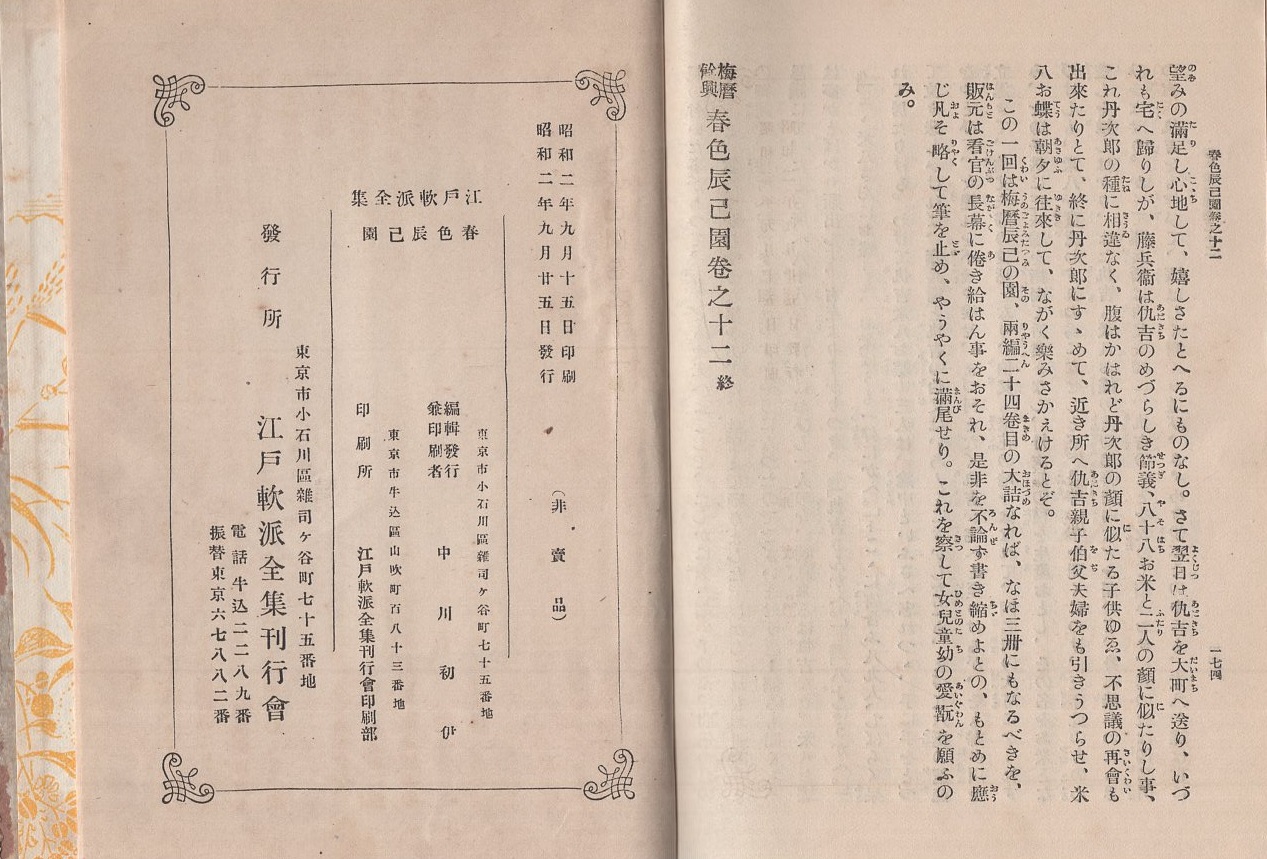 春色辰己園卷之十二
一七四
望みの滿足し心地して、嬉しさたとへるにものなし。さて翌日は仇吉を大町へ送り、いづ
れも宅へ歸りしが、藤兵衞は仇吉のめづらしき節義、八十八お米と二人の顏に似たりし事、
これ丹次郎の種に相違なく、腹はかはれど丹次郎の顏に似たる子供ゆゑ、不思議の再會も
出來たりとて、終に丹次郎にすゝめて、近き所へ仇吉親子伯父夫婦をも引きうつらせ、米
八お蝶は朝夕に往來して、ながく樂みさかえけるとぞ。
この一回は梅曆辰己の園、兩編二十四卷目の大詰なれば、なほ三册にもなるべきを、
販元は看官の長幕に倦き給はん事をおそれ、是非を不論ず書き縮めよとの、もとめに應
じ凡そ略して筆を止め、やうやくに滿尾せり。これを察して女兒童幼の愛翫を願ふの
み。
梅曆
餘興 春色辰己園卷之十二 終
昭和二年九月十五日印刷
昭和二年九月廿五日發行
（非賣品）
江戶軟派全集
春色辰己園
東京市小石川區雜司ヶ谷町七十五番地
編輯發行
兼印刷者 中川初伊
東京市牛込區山吹町百八十三番地
印刷所 江戶軟派全集刊行會印刷部
發行所
東京市小石川區雜司ヶ谷町七十五番地
江戶軟派全集刊行會
電話牛込二二八九番
振替東京六七八八二番